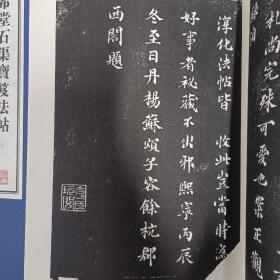 淳化法帖皆收此豈當時為
好事者秘藏不出邪熙寧丙辰
冬至日丹楊蘇頌子容餘杭郡
西閣題
尚完殊可愛也
希堂石渠寶笈法帖